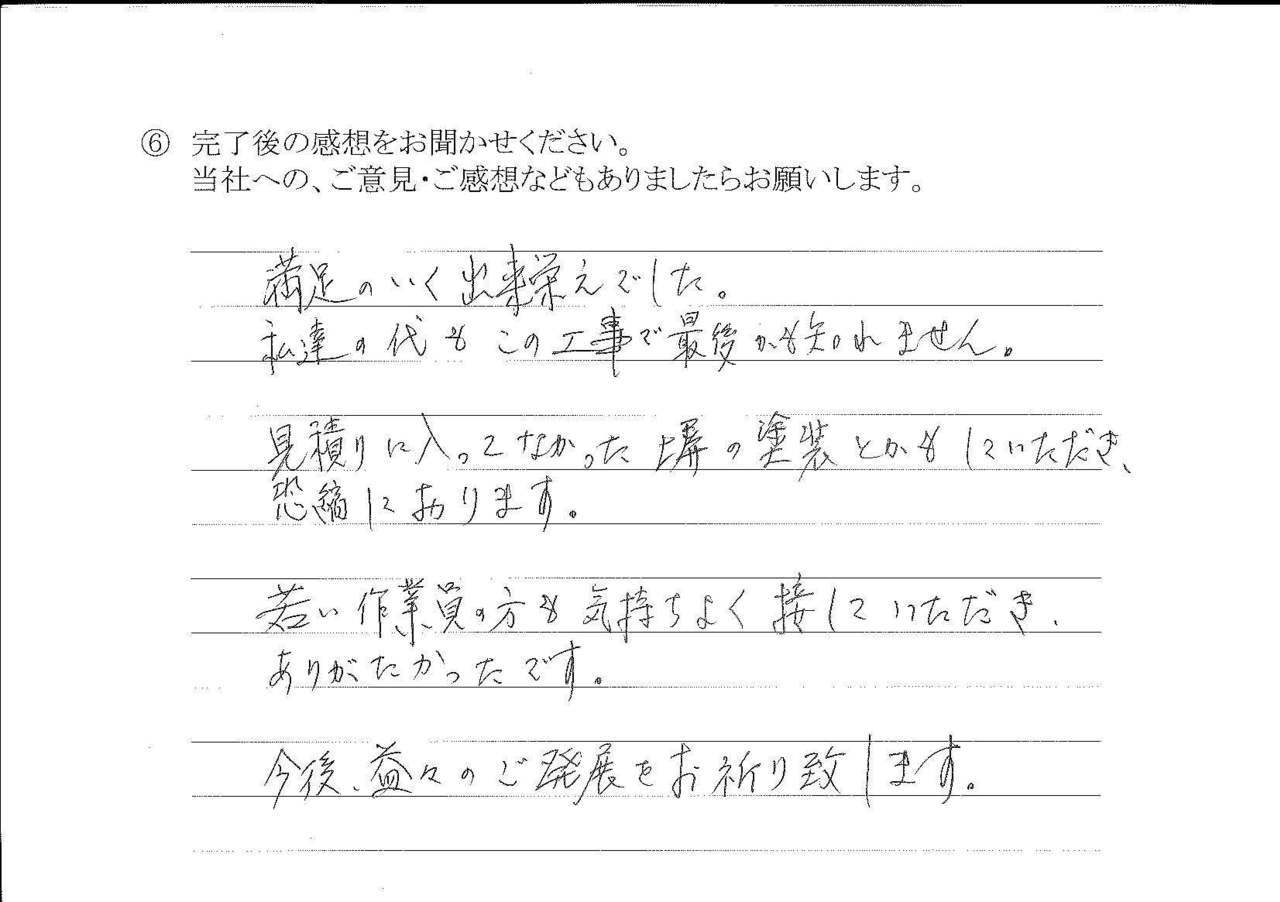 ⑥ 完了後の感想をお聞かせください。
当社への、ご意見・ご感想などもありましたらお願いします。
満足のいく出来栄えでした。
私達の代もこの工事で最後かも知れません。
見積りに入ってなかった塀の塗装とかもしていただき、
恐縮しております。
若い作業員の方も気持ちよく接していただき、
ありがたかったです。
今後、益々のご発展をお祈り致します。